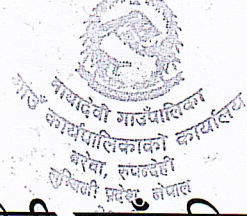 मायादेवी गाउँपालिका
गाउँ कार्यपालिकाको कार्यालय
बरेवा, रुपन्देही
लुम्बिनी प्रदेश, नेपाल